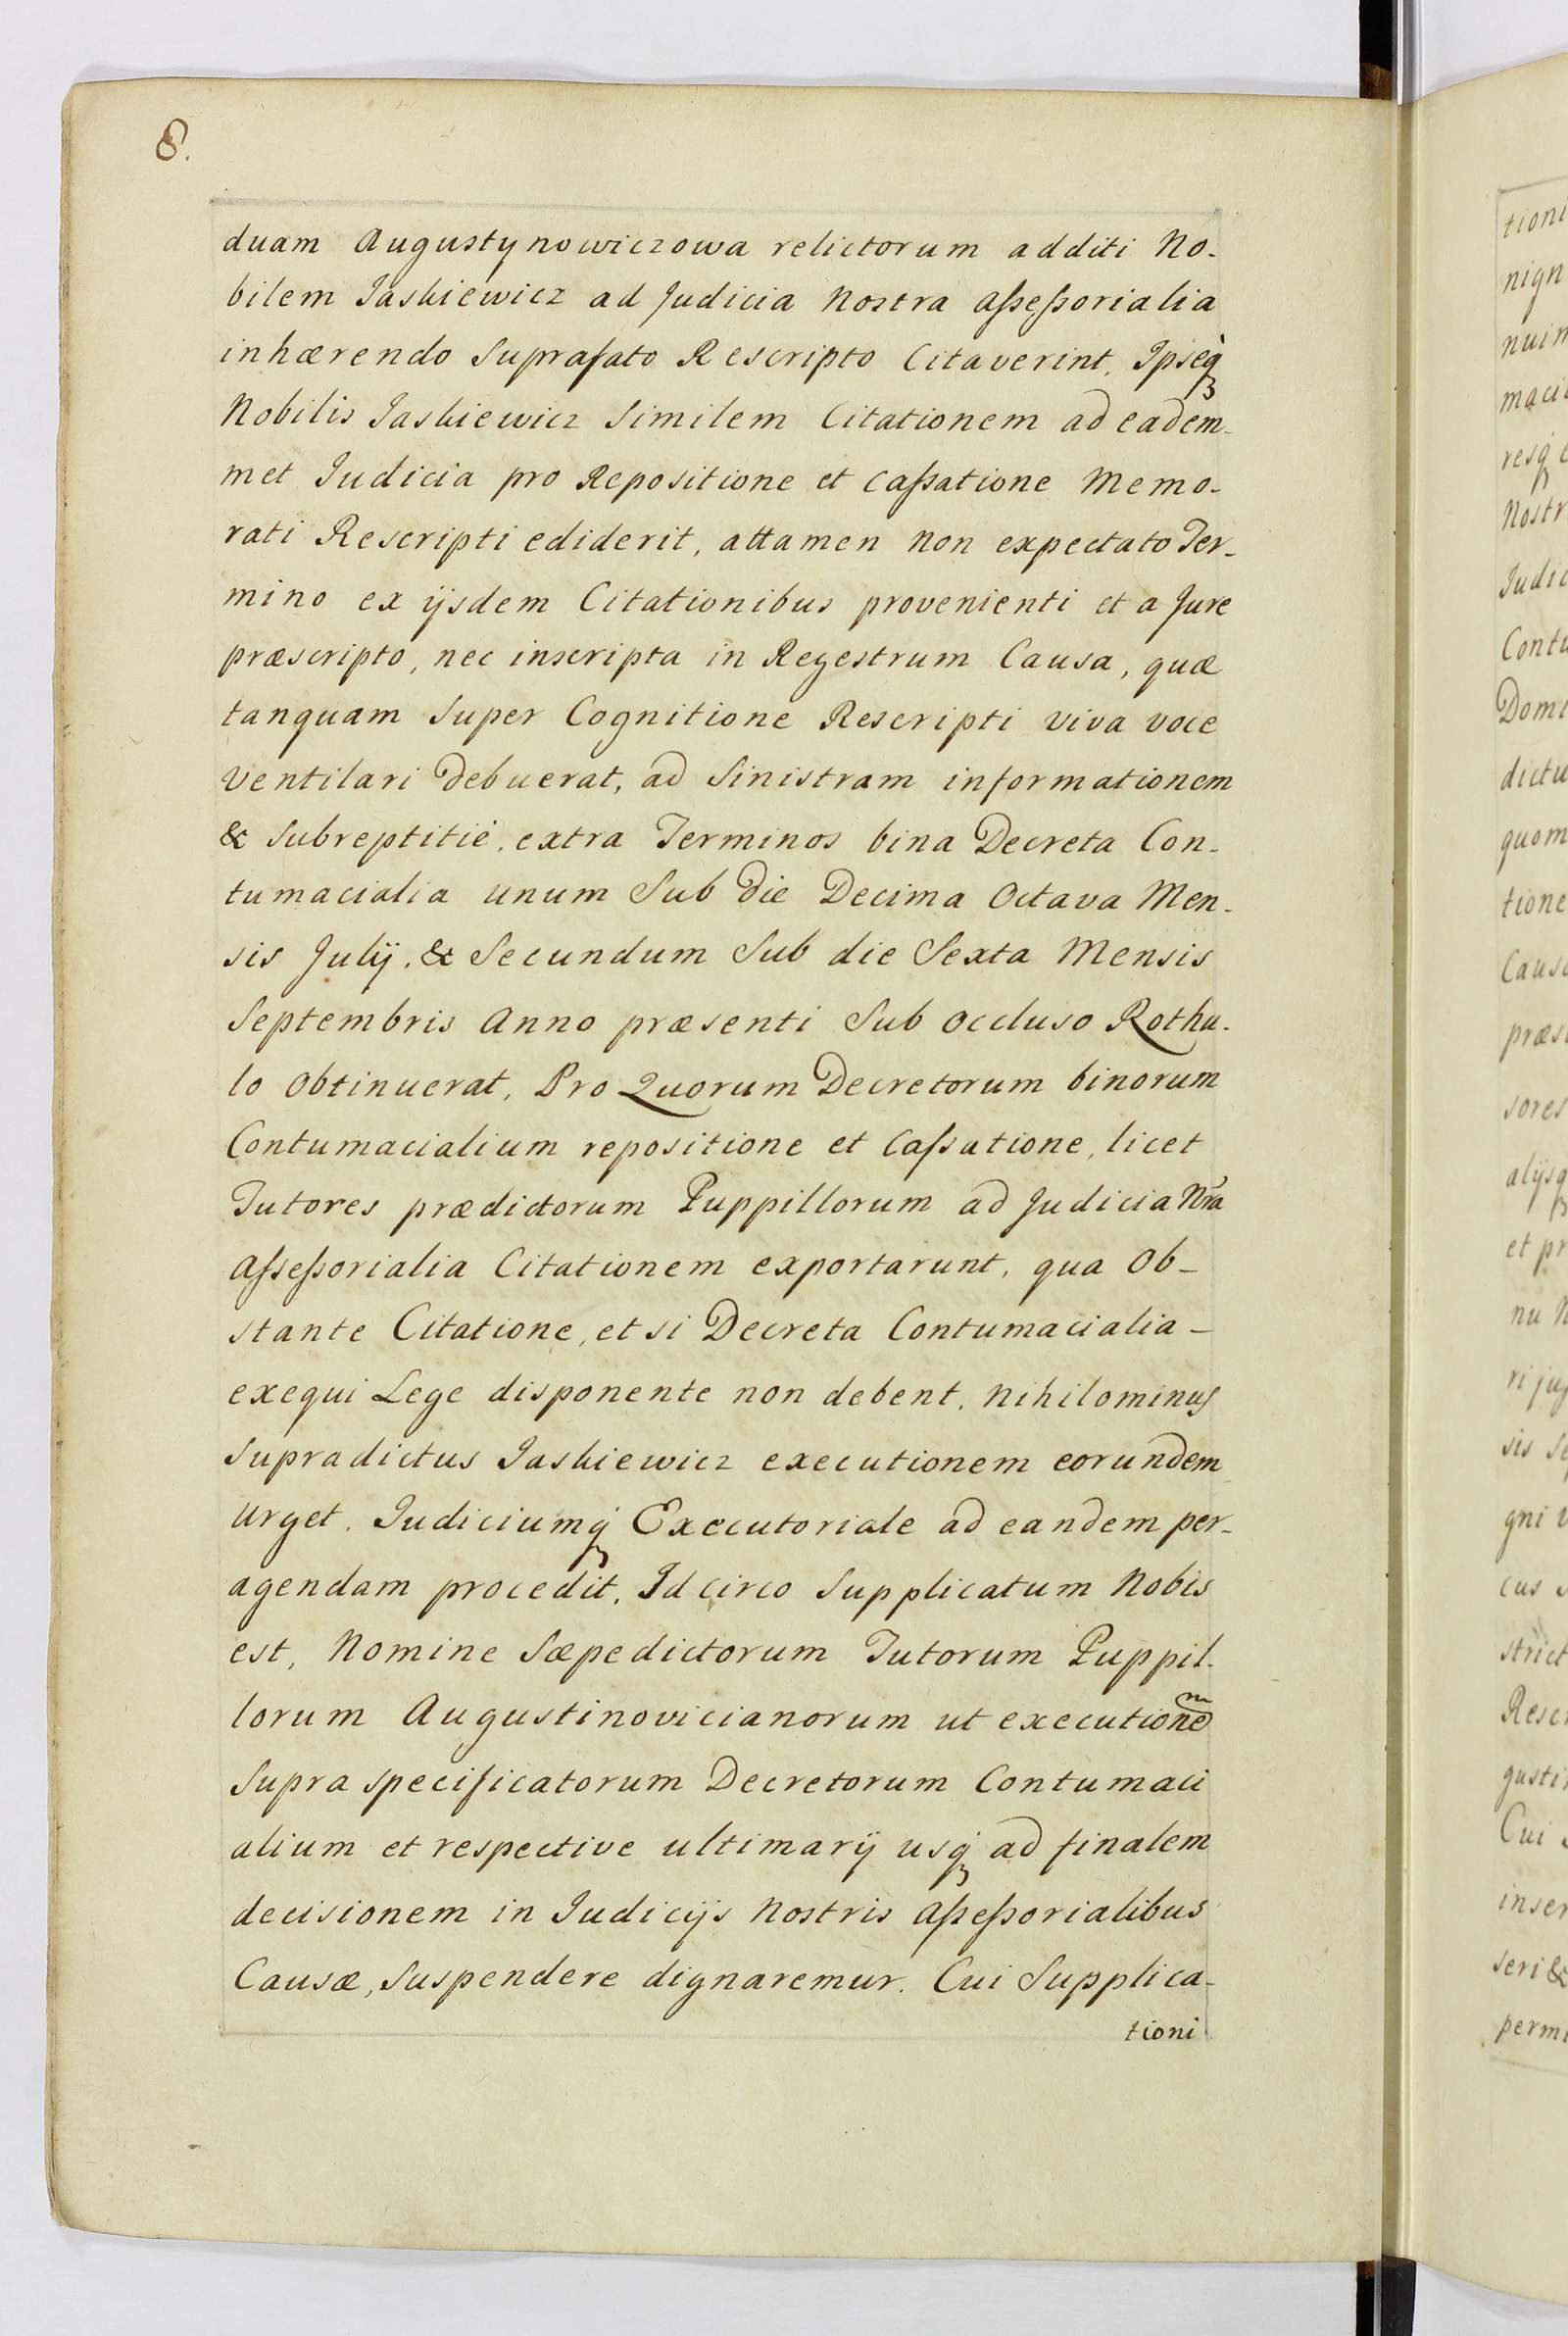 8.
duam Augustynowiczowa relictorum additi No-
bilem Jaskiewicz ad Judicia Nostra Assessorialia
inhærendo Suprafato Rescripto Citaverint, Ipseq̃
Nobilis Jaskiewicz Similem Citationem ad eadem-
met Judicia pro Repositione et Cassatione Memo-
rati Rescripti ediderit, attamen Non expectato Ter-
mino ex ijsdem Citationibus provenienti et a Jure
præscripto, nec inscripta in Regestrum Causa, quæ
tanquam Super Cognitione Rescripti viva voce
Ventilari Debuerat, ad Sinistram informationem
& Subreptitiè, extra Terminos bina Decreta Con-
tumacialia unum Sub Die Decima Octava Men-
sis Julij, & Secundum Sub die Sexta Mensis
Septembris Anno præsenti Sub Occluso Rothu-
lo Obtinuerat, Pro Quorum Decretorum binorum
Contumacialium repositione et Cassatione, licet
Tutores prædictorum Puppillorum ad Judicia Nr̃a
Assessorialia Citationem exportarunt, qua Ob-
stante Citatione, et si Decreta Contumacialia -
exequi Lege disponente non debent, Nihilominus
Supradictus Jaskiewicz executionem eorundem
Urget. Judiciumq̃ Executoriale ad eandem per-
agendam procedit, Id circo Supplicatum Nobis
est, Nomine Sæpedictorum Tutorum Puppil-
lorum Augustinovicianorum ut execution̄e
Supra specificatorum Decretorum Contumaci
alium et respective ultimarij usq̃ ad finalem
decisionem in Judicijs Nostris Assessorialibus
Causæ, Suspendere dignaremur. Cui Supplica-
tioni
tioni
nign
maci
resq̃
Nostr
Judic
Cont
Domi
dictu
quom
tione
Caus
præs
sores
alijsq
et pr
nu
sis
gni
cus
strict
Resc
gusti
Cui
inser
seri &
perm